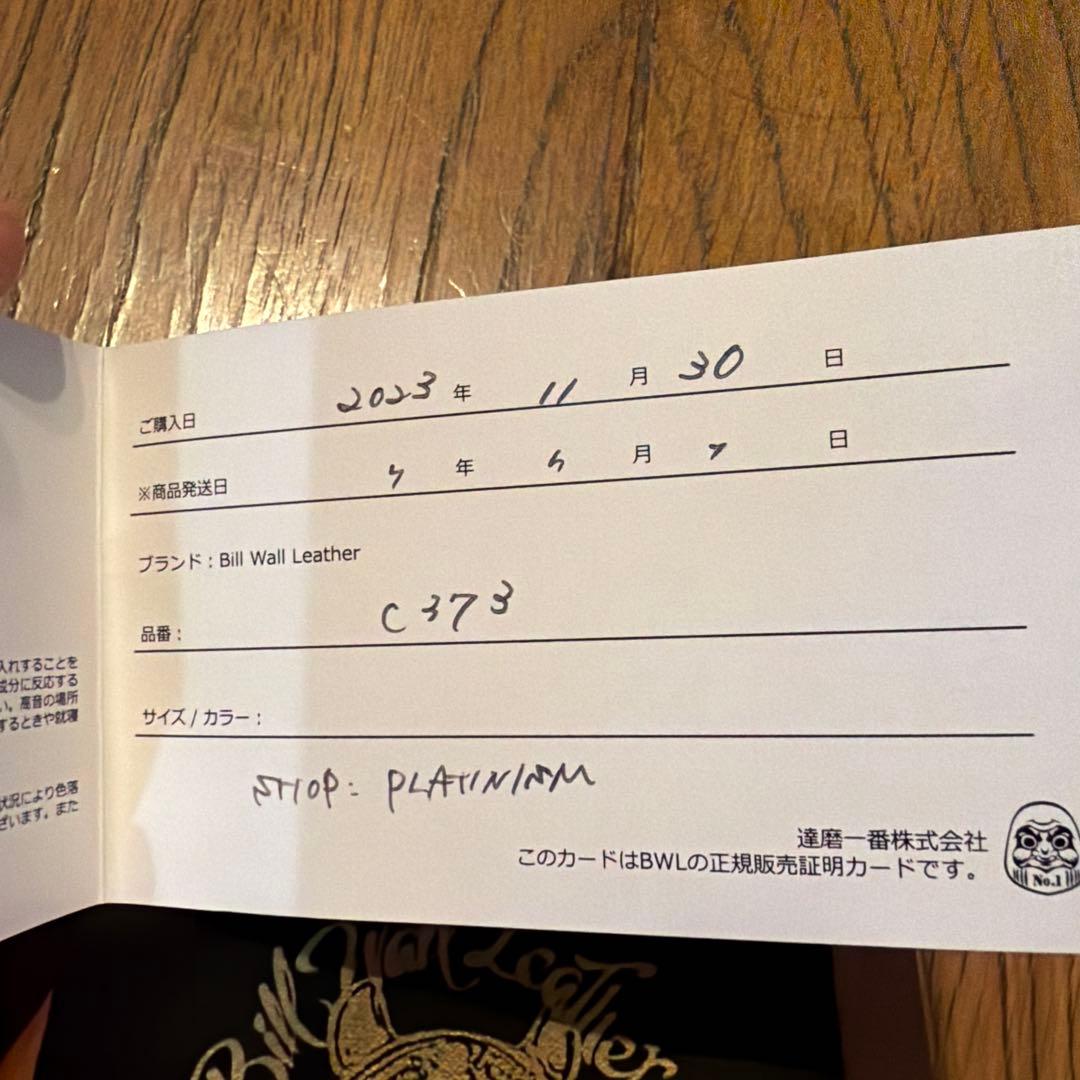 ご購入日 2023 年 11 月 30 日
※商品発送日 〃 年 〃 月 〃 日
ブランド：Bill Wall Leather
品番： C373
サイズ / カラー：
SHOP: PLATINISM
達磨一番株式会社
このカードはBWLの正規販売証明カードです。
No.1
入れすることを
成分に反応する
い。高音の場所
するときや就寝
状況により色落
ざいます。また
Bill Wall Leather